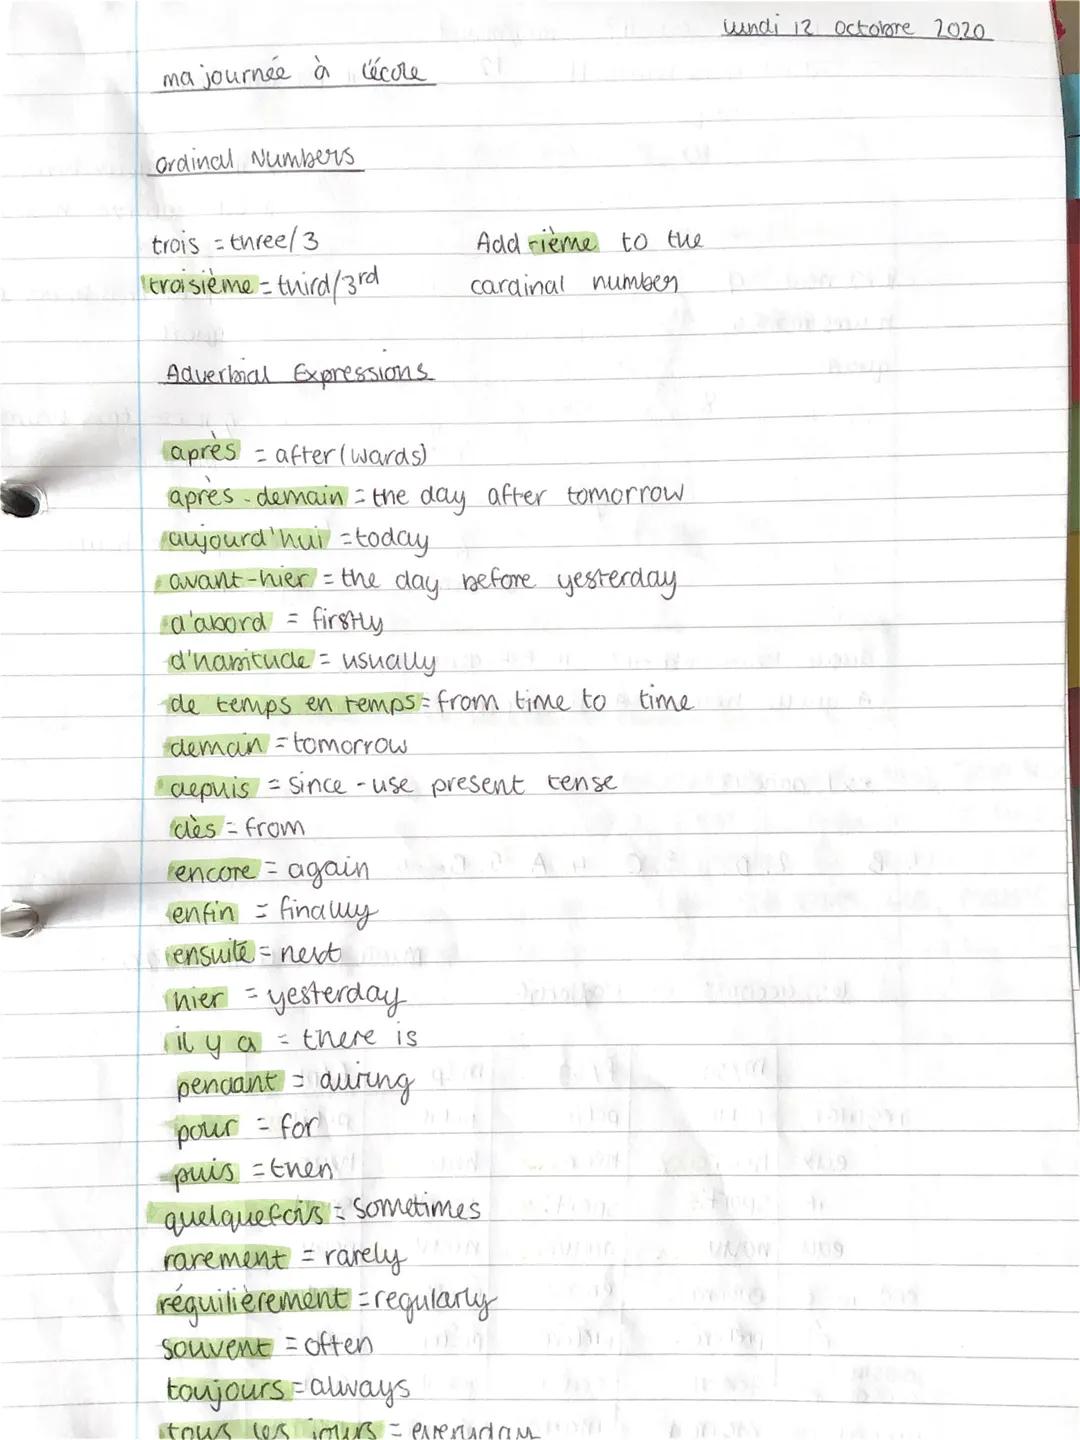 lundi 12 octobre 2020
ma journée à l'école
Ordinal Numbers
trois = three/3
Add -ième to the
troisième = third/3rd
cardinal number
Adverbial Expressions
après = after(wards)
après-demain = the day after tomorrow
aujourd'hui = today
avant-hier = the day before yesterday
d'abord = firstly
d'habitude = usually
de temps en temps = from time to time
demain = tomorrow
depuis = since - use present tense
dès = from
encore = again
enfin = finally
ensuite = next
hier = yesterday
il y a = there is
pendant = during
pour = for
puis = then
quelquefois = sometimes
rarement = rarely
réguilièrement = regularly
souvent = often
toujours = always
tous les jours = everyday